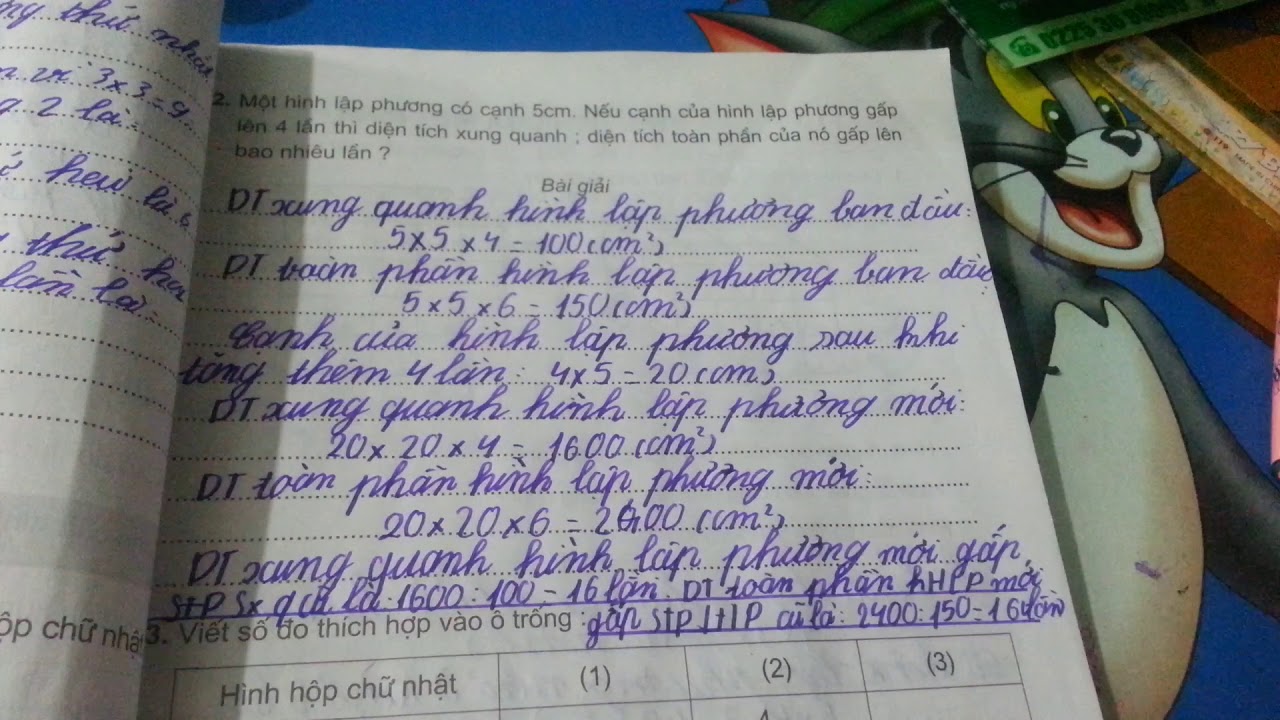 ng thứ nhất
3x3=9
g 2 là:
thứ hai
lần là:
0225 30
2. Một hình lập phương có cạnh 5cm. Nếu cạnh của hình lập phương gấp
lên 4 lần thì diện tích xung quanh ; diện tích toàn phần của nó gấp lên
bao nhiêu lần ?
Bài giải
DT xung quanh hình lập phương ban đầu:
5x5x4=100(cm²)
DT toàn phần hình lập phương ban đầu
5x5x6=150(cm²)
Cạnh của hình lập phương sau khi
tăng thêm 4 lần: 4x5=20(cm)
DT xung quanh hình lập phương mới:
20x20x4=1600(cm²)
DT toàn phần hình lập phương mới:
20x20x6=2400(cm²)
DT xung quanh hình lập phương mới gấp
Sxq cũ là 1600:100=16 lần. DT toàn phần hHPP mới
gấp stp cũ là: 2400:150=16 lần
ộp chữ nhậ
3. Viết số đo thích hợp vào ô trống :
Hình hộp chữ nhật (1) (2) (3)